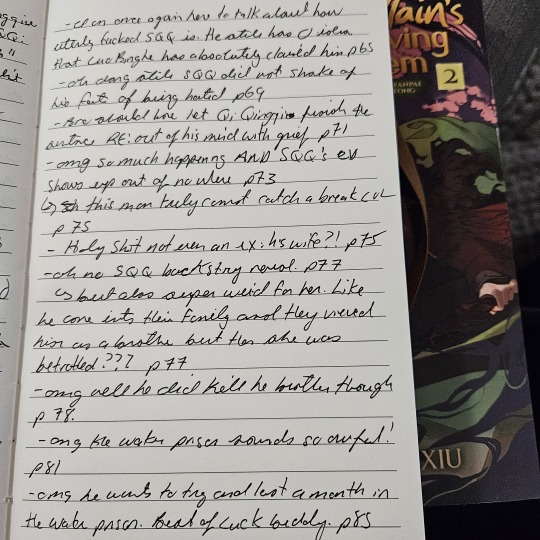 once again here to talk about how
utterly fucked SQQ is. He still has 0 idea
that Luo Binghe has absolutely claimed him p65
- oh dang still SQQ did not shake of
his fate of being hated p69
- Bro should have let Qi Qingqi finish the
RE: out of his mind with grief p71
- omg so much happening AND SQQ's ex
shows up out of nowhere p73
↳ this man truly cannot catch a break LOL
p75
- Holy shit not even an ex: his wife?! p75
- oh no SQQ backstory reveal. p77
↳ but also super weird for her. Like
he came into their family and they viewed
him as a brother but then she was
betrothed??? p77
- omg well he did kill he brother though
p78.
- omg the water prison sounds so awful!
p81
- omg he wants to try and last a month in
the water prison. Best of luck buddy. p85
lain's
ving
em
2
TONG
XIU